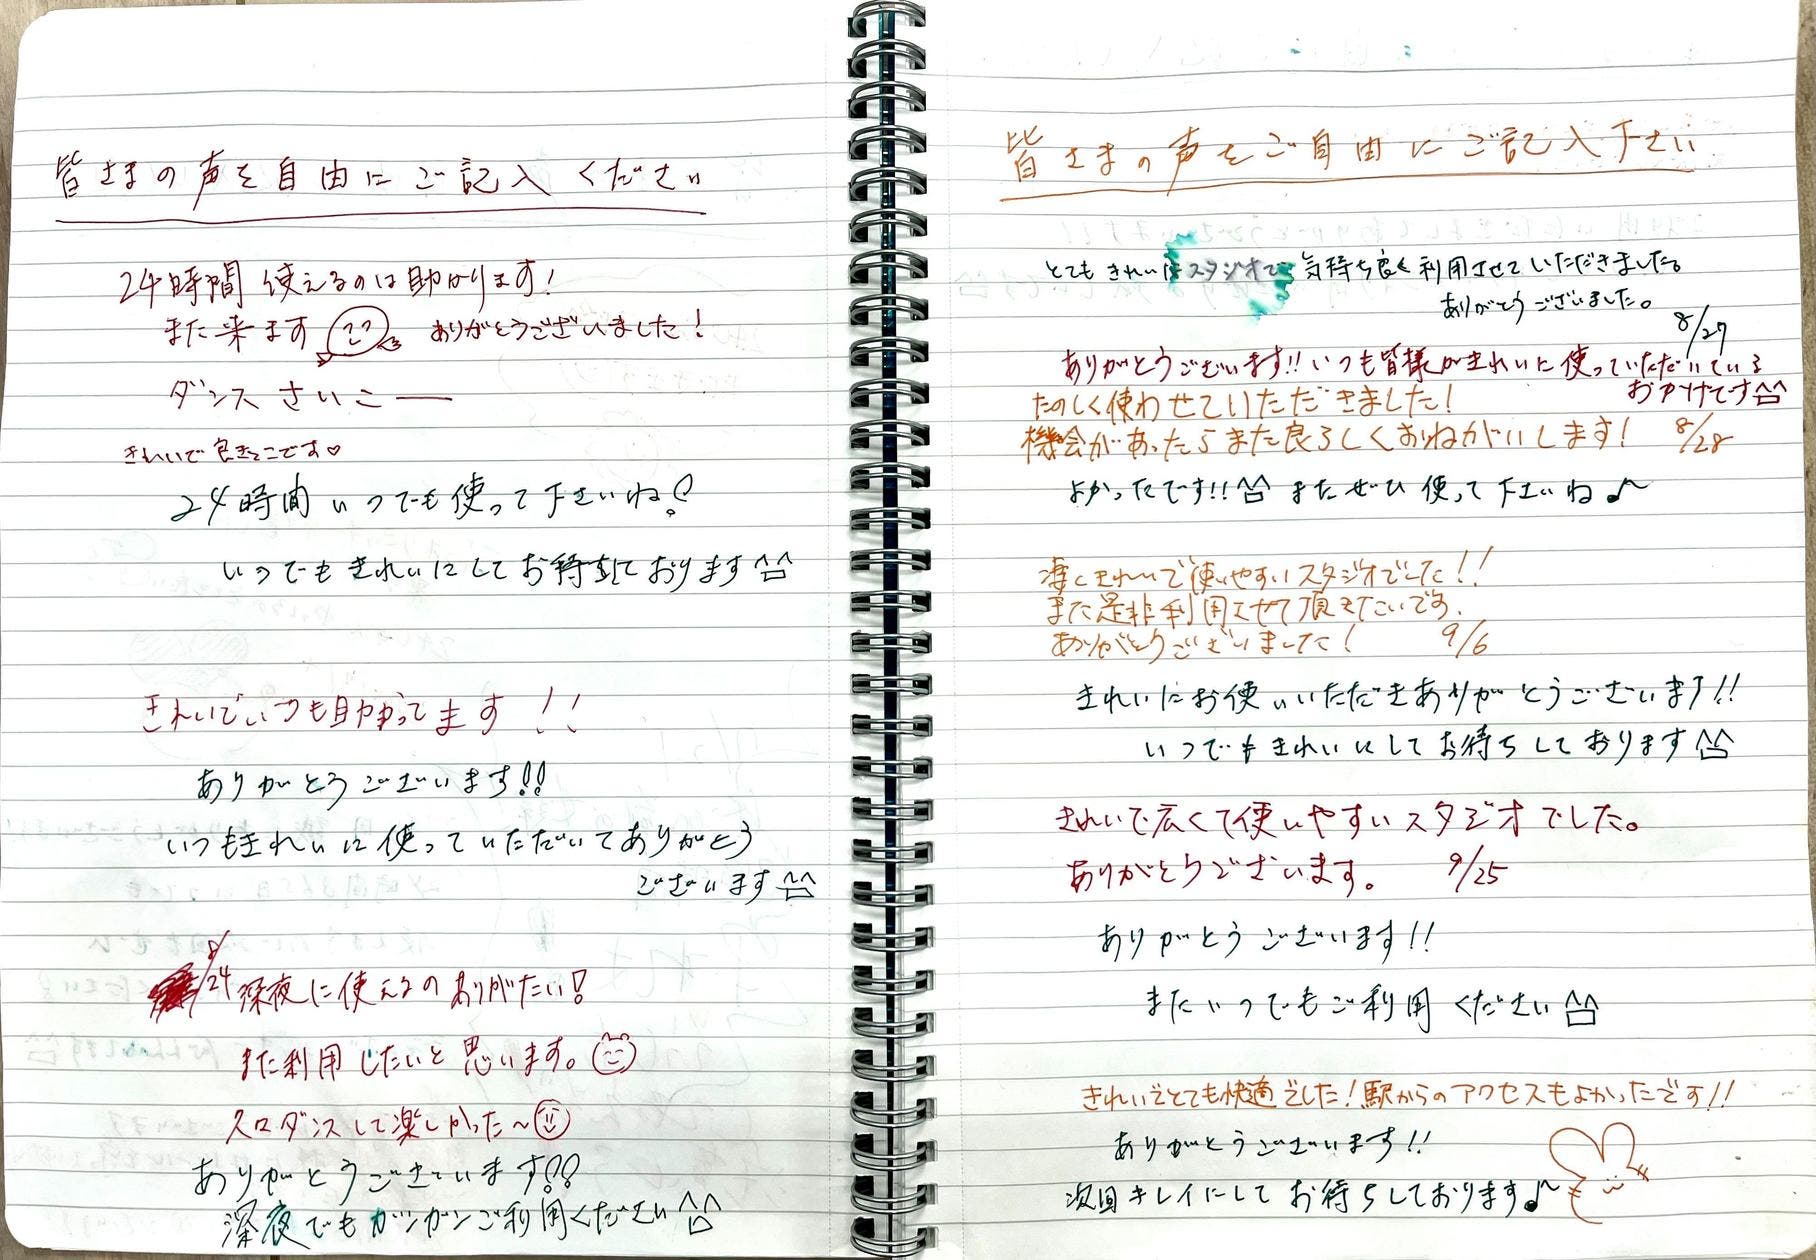 皆さまの声を自由にご記入ください
24時間使えるのは助かります!
また来ます ありがとうございました!
ダンスさいこー
きれいで良きとこです♡
24時間いつでも使って下さいね!
いつでもきれいにしてお待ちしております^^
きれいでいつも助かってます!!
ありがとうございます!!
いつもきれいに使っていただいてありがとう
ございます^^
8/24 深夜に使えるのありがたい!
また利用したいと思います。
ダンスして楽しかった~
ありがとうございます!!
深夜でもガンガンご利用ください^^
皆さまの声をご自由にご記入下さい
とてもきれいなスタジオで気持ち良く利用させていただきました。
ありがとうございました。
8/27
ありがとうございます!!いつも皆様がきれいに使っていただいている
おかげです^^
たのしく使わせていただきました!
機会があったらまた良ろしくおねがいします! 8/28
よかったです!!^^ またぜひ使って下さいね♪
凄くきれいで使いやすいスタジオでした!!
また是非利用させて頂きたいです.
ありがとうございました! 9/6
きれいにお使いいただきありがとうございます!!
いつでもきれいにしてお待ちしております^^
きれいで広くて使いやすいスタジオでした。
ありがとうございます。 9/25
ありがとうございます!!
またいつでもご利用ください^^
きれいでとても快適でした!駅からのアクセスもよかったです!!
ありがとうございます!!
次回キレイにしてお待ちしております♪